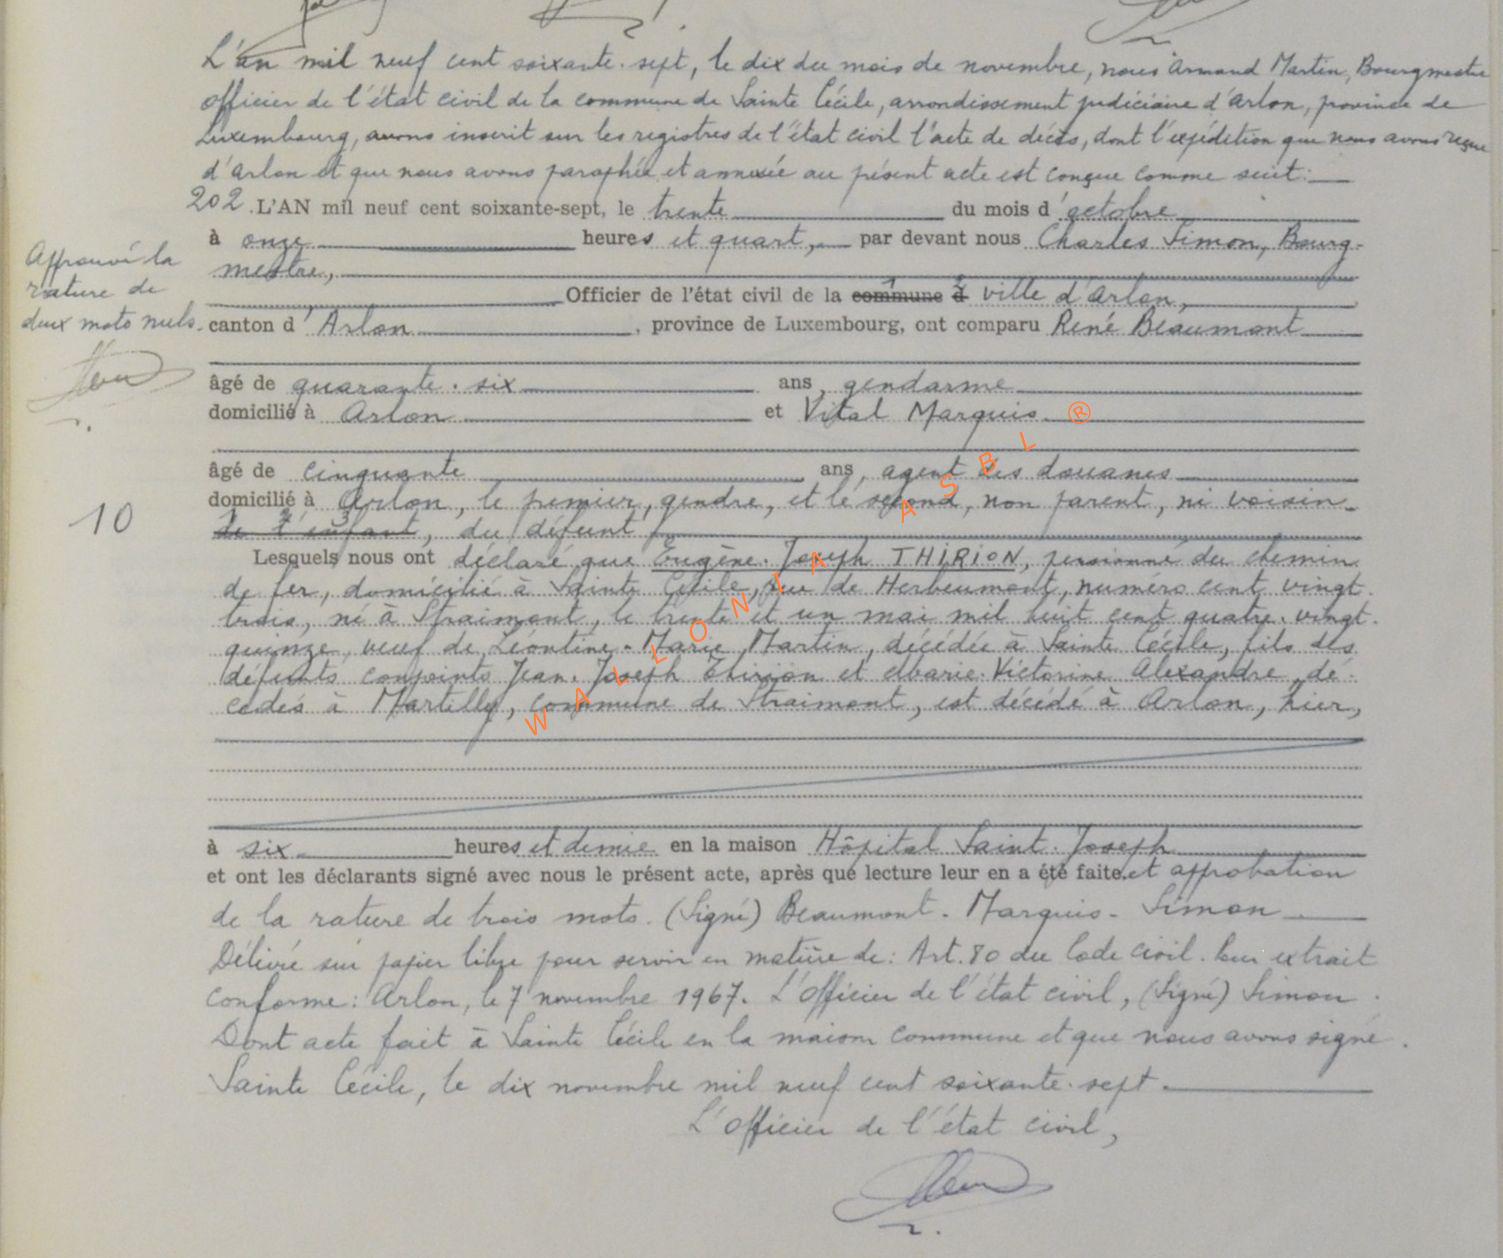 L'an mil neuf cent soixante-sept, le dix du mois de novembre, nous Armand Martin, Bourgmestre
officier de l'état civil de la commune de Sainte Cécile, arrondissement judiciaire d'Arlon, province de
Luxembourg, avons inscrit sur les registres de l'état civil l'acte de décès, dont l'expédition que nous avons reçue
d'Arlon et que nous avons paraphée et annexée au présent acte est conçue comme suit:
202. L'AN mil neuf cent soixante-sept, le trente du mois d'octobre
à onze heures et quart, par devant nous Charles Simon, Bourg-
mestre,
Approuvé la rature de deux mots nuls.
Officier de l'état civil de la commune d ville d'Arlon,
canton d'Arlon, province de Luxembourg, ont comparu René Beaumont
âgé de quarante-six ans, gendarme
domicilié à Arlon et Vital Marquis
âgé de cinquante ans, agent des douanes
10
domicilié à Arlon, le premier, gendre, et le second, non parent, ni voisin
de l'enfant, du défunt
Lesquels nous ont déclaré que Eugène-Joseph THIRION, pensionné du chemin
de fer, domicilié à Sainte Cécile, rue de Herbeumont, numéro cent vingt
trois, né à Straimont, le trente et un mai mil huit cent quatre-vingt-
quinze, veuf de Léontine-Marie Martin, décédée à Sainte Cécile, fils des
défunts conjoints Jean-Joseph Thirion et Marie-Victorine Alexandre, dé-
cédés à Martilly, commune de Straimont, est décédé à Arlon, hier,
à six heures et demie en la maison Hôpital Saint-Joseph
et ont les déclarants signé avec nous le présent acte, après que lecture leur en a été faite et approbation
de la rature de trois mots. (Signé) Beaumont - Marquis - Simon
Délivré sur papier libre pour servir en matière de: Art. 80 du Code civil. Pour extrait
conforme: Arlon, le 7 novembre 1967. L'officier de l'état civil, (Signé) Simon.
Dont acte fait à Sainte Cécile en la maison commune et que nous avons signé.
Sainte Cécile, le dix novembre mil neuf cent soixante-sept.
L'officier de l'état civil,
WALLONIA ASBL ®